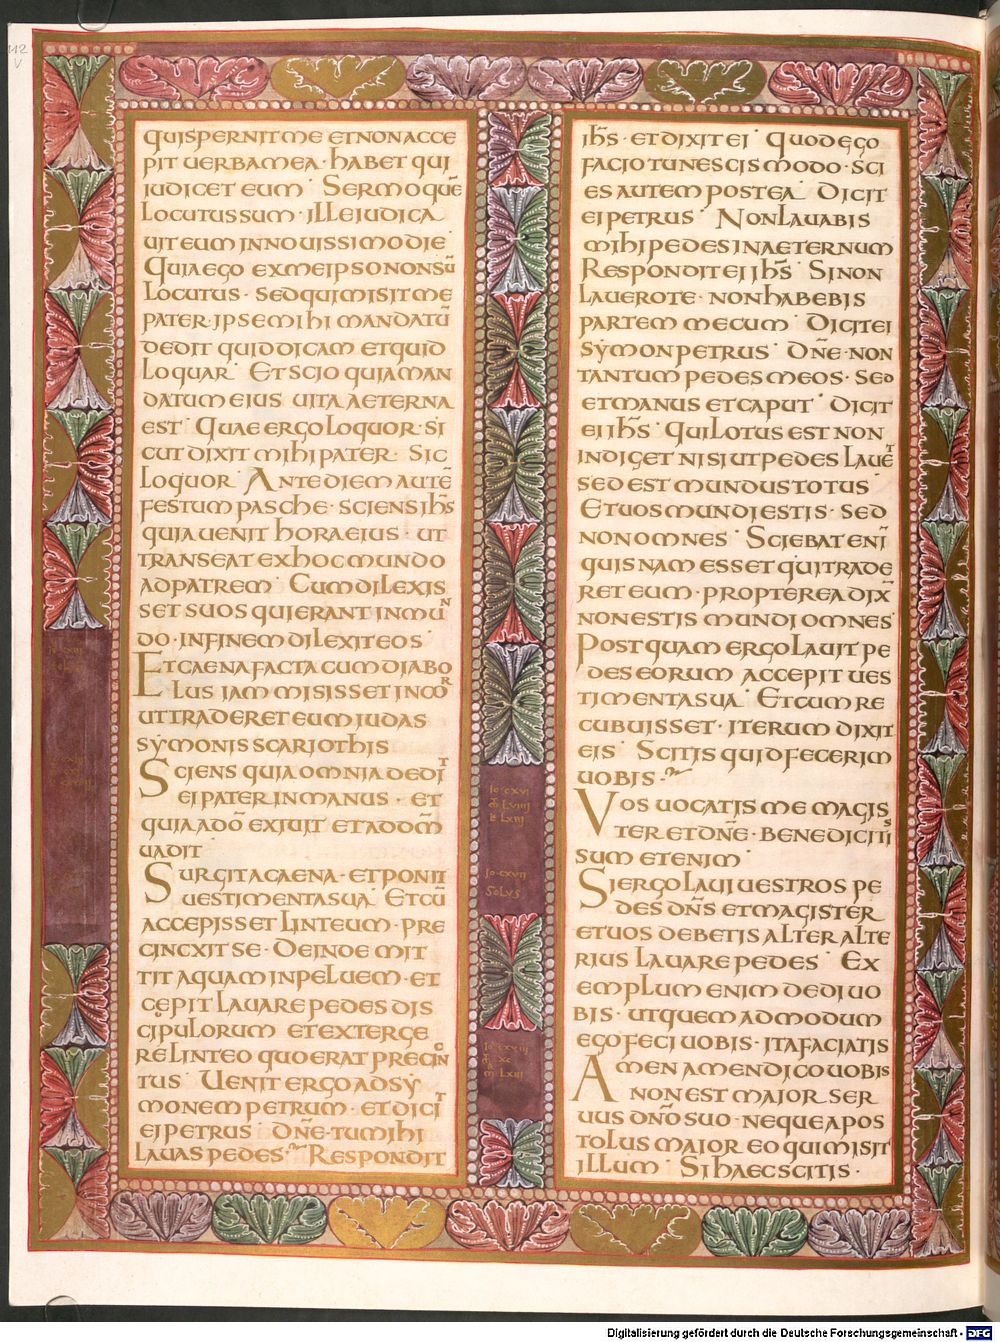 112
v
QUISPERNITME ETNONACCE
PIT UERBAMEA · HABET QUI
IUDICET EUM · SERMOQUĒ
LOCUTUSSUM · ILLEIUDICA
UITEUMINNOUISSIMODIE
QUIAEGO EXMEIPSONONSŪ
LOCUTUS · SEDQUIMISITME
PATER · IPSEMIHI MANDATŪ
DEDIT QUIDDICAM ETQUID
LOQUAR · ETSCIO QUIAMAN
DATUM EIUS UITA AETERNA
EST · QUAE ERGO LOQUOR · SI
CUT DIXIT MIHI PATER · SIC
LOQUOR · ANTEDIEM AUTĒ
FESTUM PASCHE · SCIENS IHS
QUIAUENIT HORAEIUS · UT
TRANSEAT EXHOCMUNDO
ADPATREM · CUMDILEXIS
SET SUOS QUIERANT INMUN
DO · INFINEM DILEXITEOS ·
ETCAENAFACTA CUMDIABO
LUS IAM MISISSET INCOR
UTTRADERET EUM IUDAS
SYMONIS SCARIOTHIS
SCIENS QUIAOMNIADEDIT
EIPATER INMANUS · ET
QUIAADŌ EXIUIT ETADDŌM
UADIT ·
SURGITACAENA · ETPONIT
UESTIMENTASUA · ETCŪ
ACCEPISSET LINTEUM · PRE
CINCXIT SE · DEINDE MIT
TIT AQUAM INPELUEM · ET
CEPIT LAUARE PEDES DIS
CIPULORUM ETEXTERGE
RE LINTEO QUOERAT PRECIN
TUS · UENIT ERGOADSY
MONEM PETRUM · ETDICIT
EIPETRUS · DN̄E · TUMIHI
LAUAS PEDES · RESPONDIT
IH̄S · ETDIXITEI · QUODEGO
FACIO TUNESCISMODO · SCI
ES AUTEM POSTEA · DICIT
EIPETRUS · NONLAUABIS
MIHIPEDESINAETERNUM
RESPONDITEI IH̄S · SINON
LAUEROTE · NONHABEBIS
PARTEM MECUM · DICITEI
SYMONPETRUS · DN̄E · NON
TANTUM PEDES MEOS · SED
ETMANUS ETCAPUT · DICIT
EI IH̄S · QUILOTUS EST NON
INDIGET NISIUTPEDES LAUET
SEDEST MUNDUSTOTUS ·
ETUOSMUNDIESTIS · SED
NONOMNES · SCIEBATENĪ
QUISNAM ESSET QUITRADE
RETEUM · PROPTEREADIX
NONESTIS MUNDIOMNES
POSTQUAM ERGOLAUIT PE
DES EORUM ACCEPIT UES
TIMENTASUA · ETCUMRE
CUBUISSET · ITERUM DIXIT
EIS · SCITIS QUIDFECERIM
UOBIS ·
UOS UOCATIS ME MAGIS
TER ETDN̄E · BENEDICITIS
SUM ETENIM ·
SIERGOLAUIUESTROS PE
DES DN̄S ETMAGISTER
ETUOS DEBETIS ALTERALTE
RIUS LAUAREPEDES · EX
EMPLUM ENIM DEDI UO
BIS · UTQUEMADMODUM
EGOFECIUOBIS · ITAFACIATIS
AMENAMENDICOUOBIS
NONEST MAIOR SER
UUS DN̄O SUO · NEQUEAPOS
TOLUS MAIOR EO QUIMISIT
ILLUM · SIHAECSCITIS ·
IO · CXVI
LVIIII
IO · CXVII
SOLVS
Digitalisierung gefördert durch die Deutsche Forschungsgemeinschaft - DFG